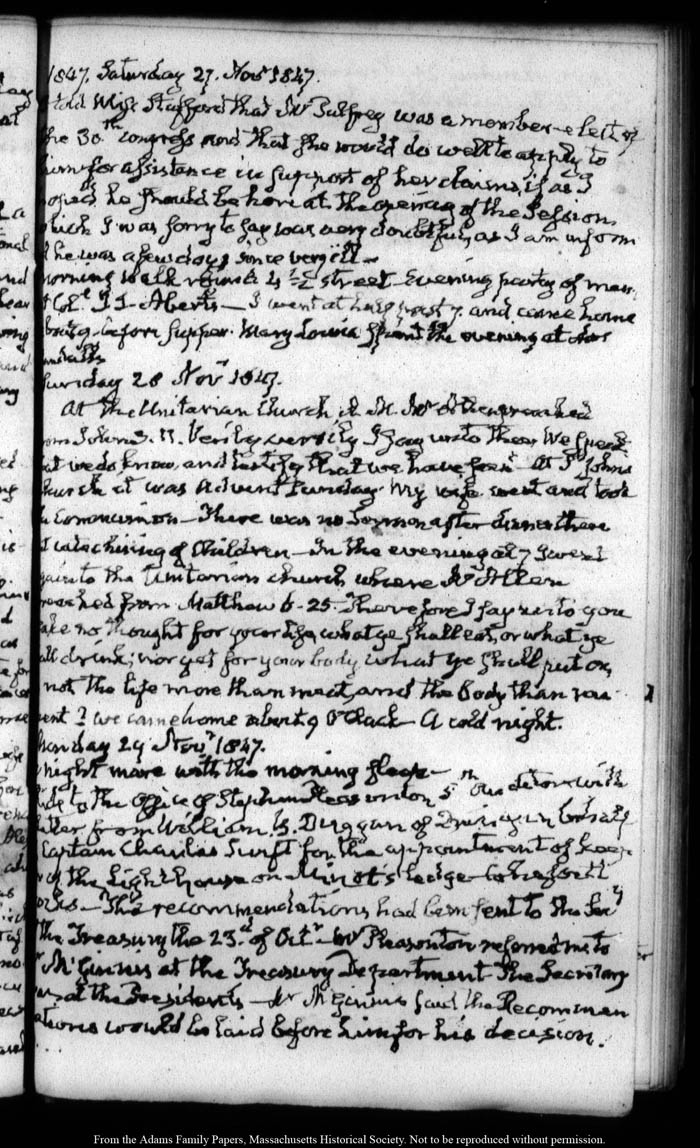 1847. Saturday 27. Novr 1847.
told Miss Stafford that Mr Palfrey was a member-elect of
the 30th Congress and that she would do well to apply to
him for assistance in support of her claims, if as I
hoped he should be here at the opening of the Session
which I was sorry to say was very doubtful, as I am inform
d he was a few days since very ill—
morning walk round 4 1/2 street Evening party of men
at Coll J. J. Abert's — I went at half past 7. and came home
about 9. before supper. Mary Louisa spent the evening at
Sunday 28 Novr 1847.
At the Unitarian Church A. M. Mr preached
from John 3. 11. Verily verily I say unto thee We speak
that we do know, and testify that we have seen. At St Johns
church it was Advent Sunday. My wife went and took
the Communion — There was no Sermon after dinner there
but catechising of Children — In the evening at 7 I went
again to the Unitarian church where Mr Allen
preached from Matthew 6-25. Therefore I say unto you
take no thought for your life, what ye shall eat, or what ye
shall drink; nor yet for your body what ye shall put on,
is not the life more than meat, and the Body than rai
ment? we came home about 9 O'Clock — A cold night.
Monday 29 Novr 1847.
night mare with the morning sleep—
to the Office of Stephen Pleasonton 5th Auditor with
letter from William S. Duggan of Quincy in behalf
Captain Charles Swift for the appointment of keep
er of the Light house on Minot's ledge
The recommendations had been sent to the Secy
of the Treasury the 23d of Octr — Mr Pleasonton referred me to
Mr McGinnis at the Treasury Department The Secretary
was at the Presidents — Mr McGinnis said the Recommen
dations would be laid before him for his decision.
From the Adams Family Papers, Massachusetts Historical Society. Not to be reproduced without permission.